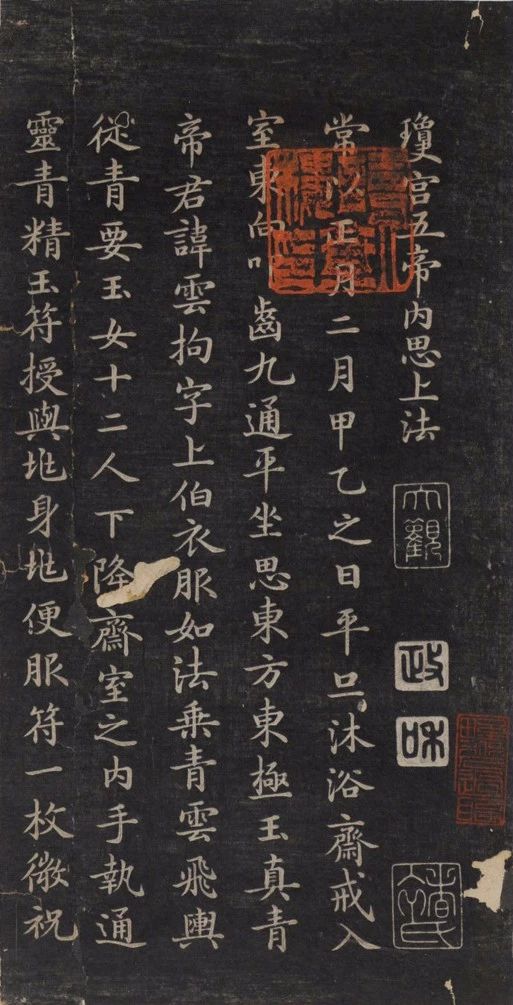 瓊宫五帝内思上法
常以正月二月甲乙之日平旦沐浴齋戒入
室東向叩齒九通平坐思東方東極玉真青
帝君諱雲拘字上伯衣服如法乘青雲飛輿
從青要玉女十二人下降齋室之内手執通
靈青精玉符授與兆身兆便服符一枚微祝
大觀
政和